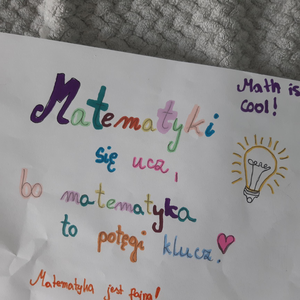 Math is
cool!
Matematyki
się ucz,
bo matematyka
to potęgi klucz!
Matematyka jest fajna!